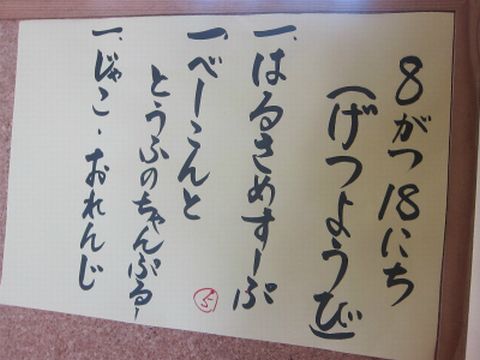 8がつ18にち
(げつようび)
一、はるさめすーぷ
一、べーこんと
とうふのちゃんぷるー
一、じゃこ・おれんじ